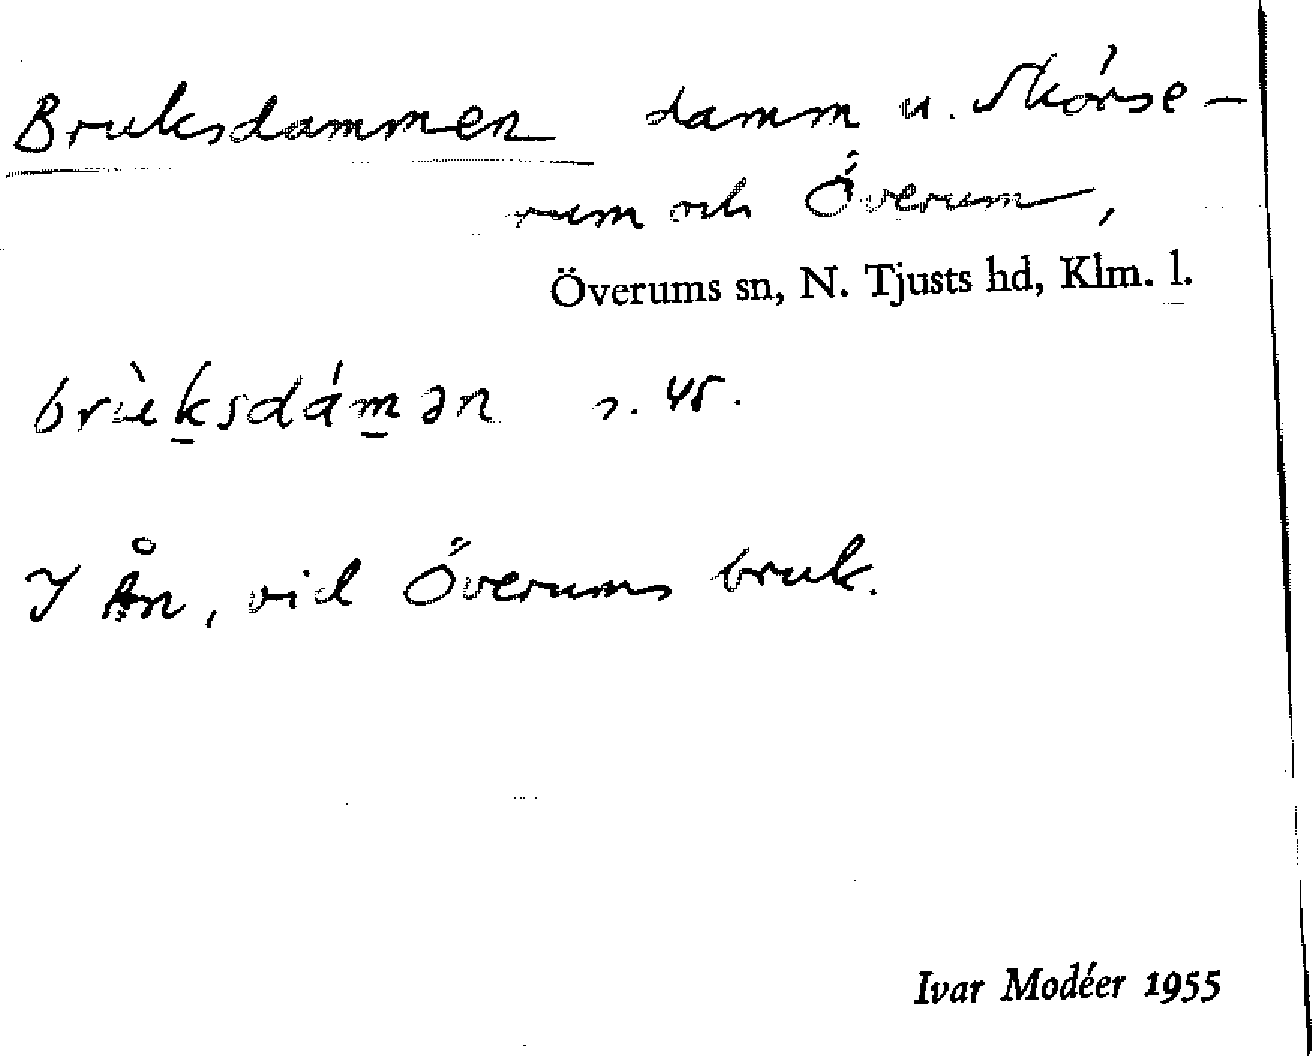 Bruksdammen damm u. Skörse-
rum och Överum,
Överums sn, N. Tjusts hd, Klm. l.
brùksdámən s. 45.
I Ån, vid Överums bruk.
Ivar Modéer 1955